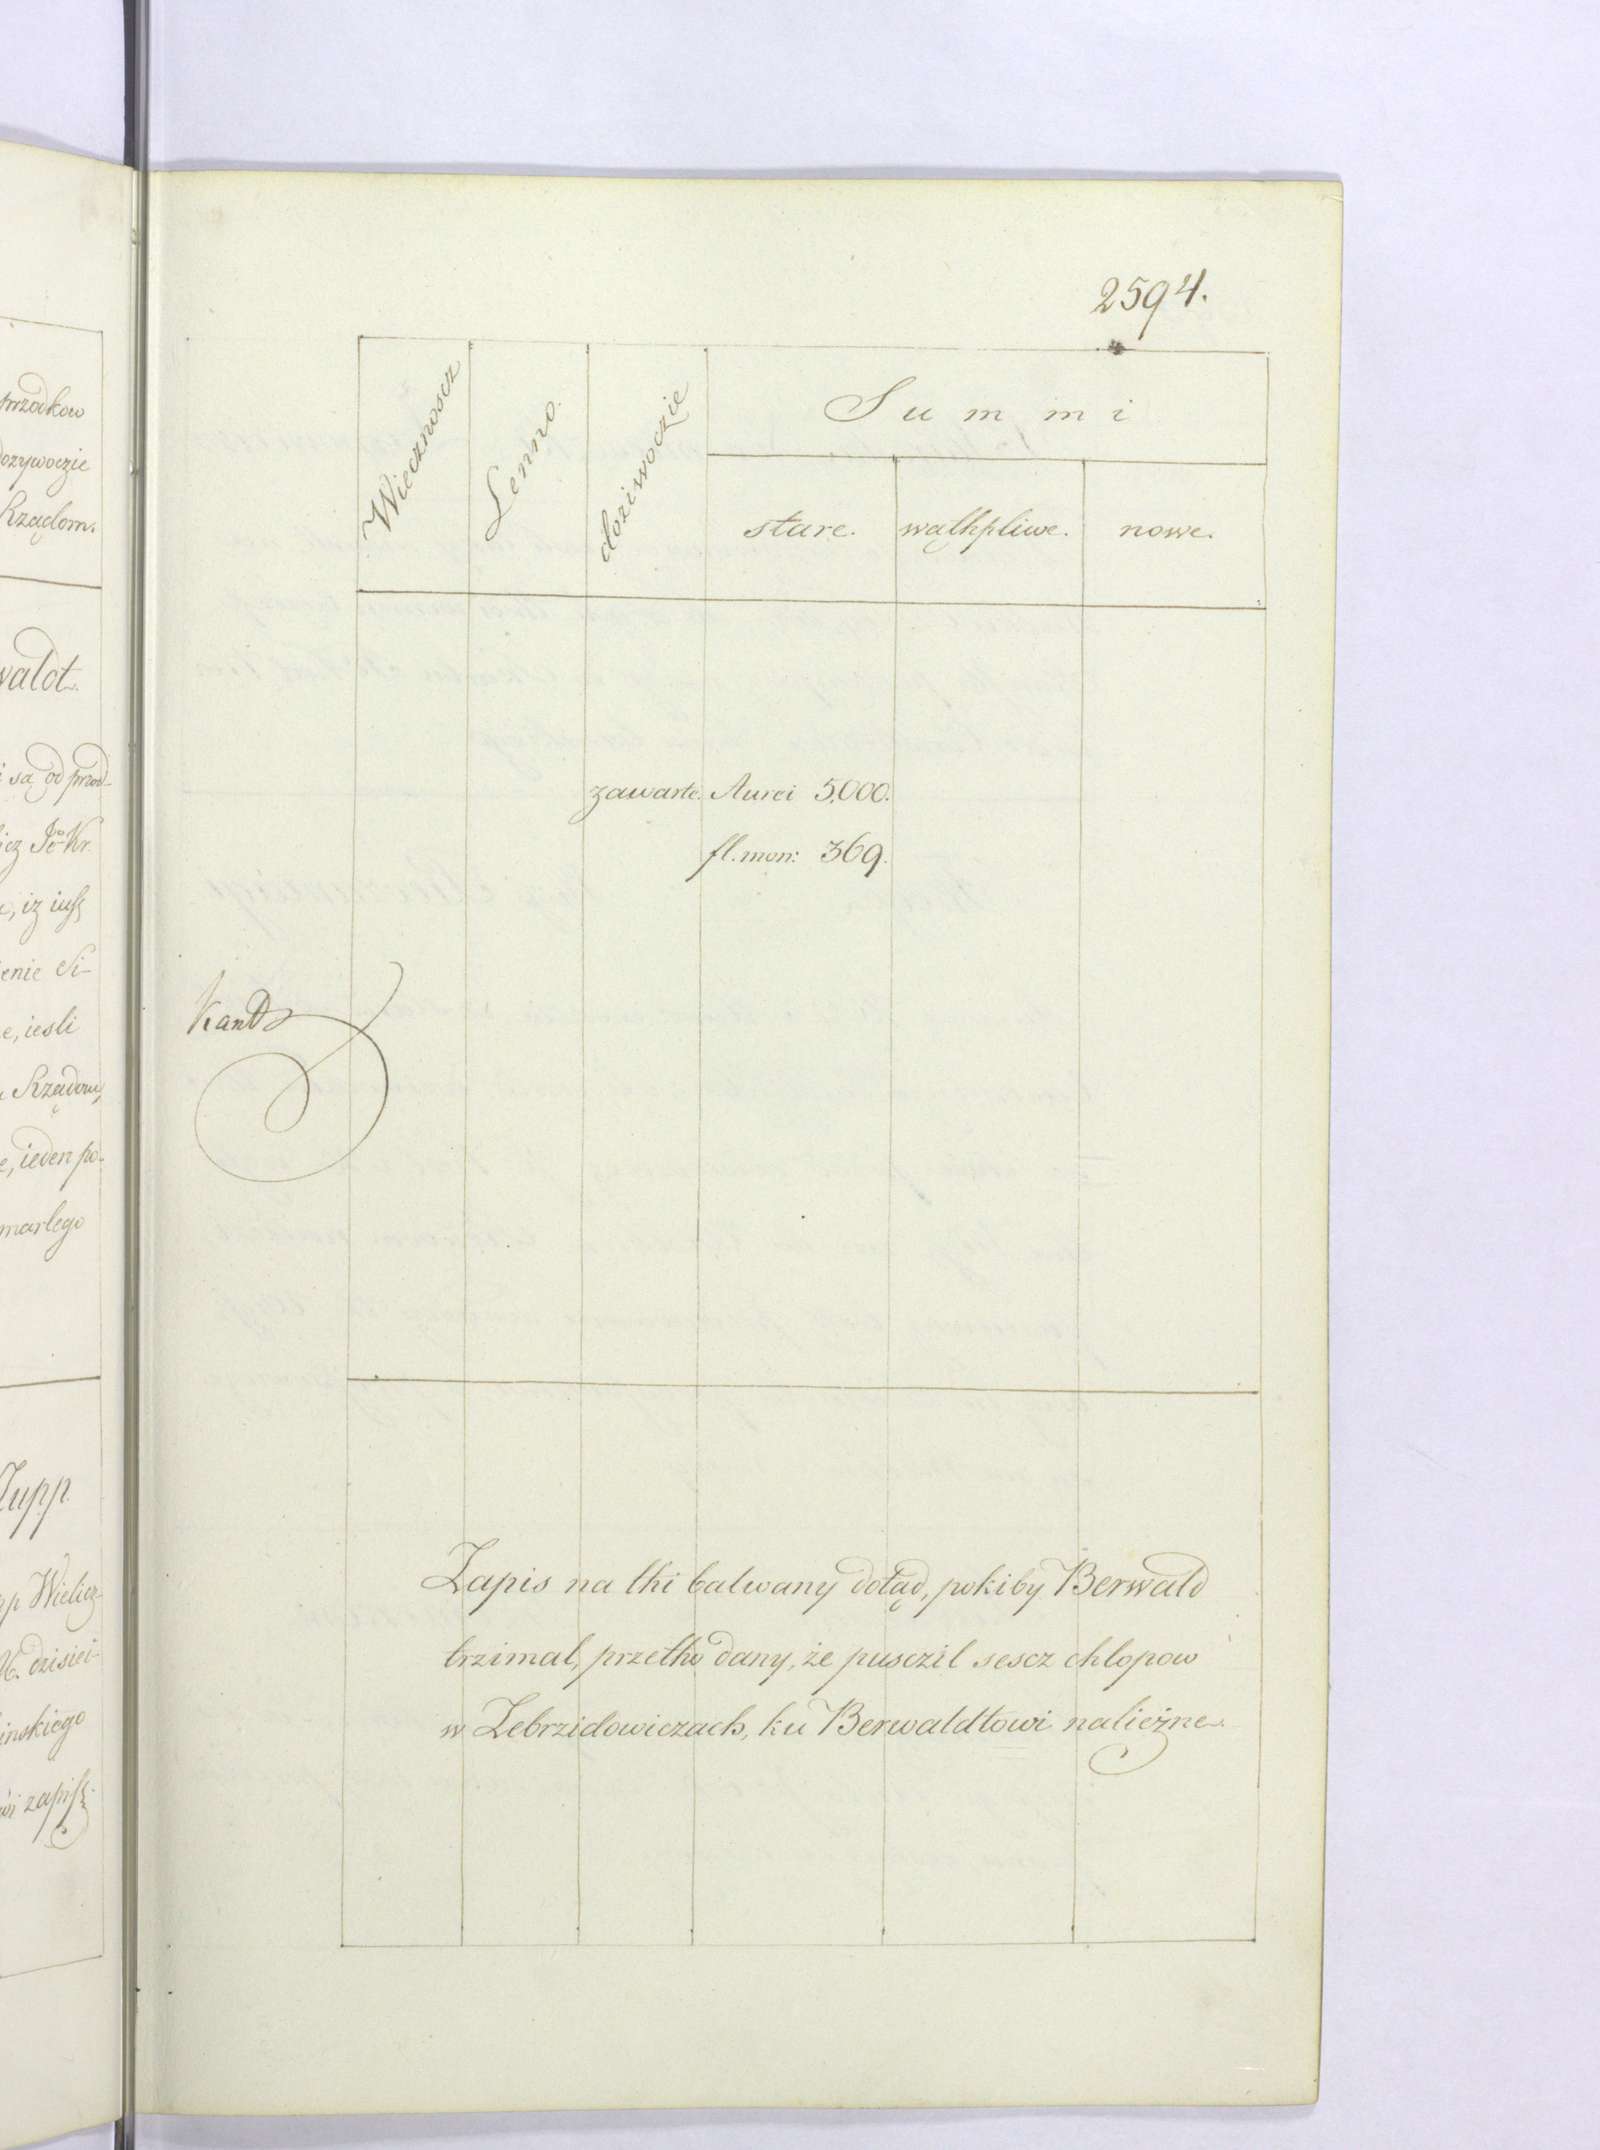 przodkow
dozywoczie
Rządom.
waldt.
i są od przod-
icz Jo Kr.
, iz iusz
enie Si-
e, iesli
Rządow,
e, ieden po-
marlego
Zupp
pp Wielicz-
96. dzisiei-
inskiego
wi zapisz.
2594.
Wiecznoscz
Lenno.
doziwoczie
Summi
stare.
wąthpliwe.
nowe.
zawarte. Aurei 5,000.
fl. mon: 369.
Kand
Zapis na thi balwany dotąd, pokiby Berwald
trzimal, przetho dany, że pusczil sescz chlopow
w Zebrzidowiczach, ku Berwaldtowi nalieżne.